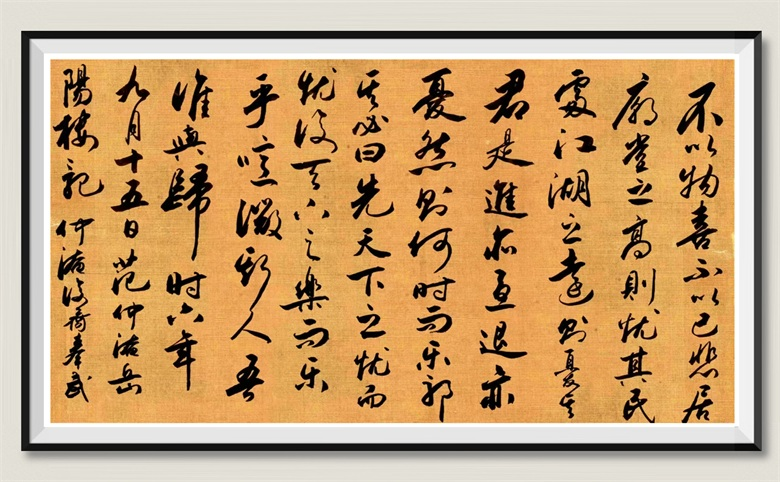 不以物喜不以己悲居
廟堂之高則忧其民
處江湖之遠则憂其
君是進亦憂退亦
憂然则何时而乐耶
其必曰先天下之忧而
忧後天下之樂而乐
乎噫微斯人吾
谁與歸时六年
九月十五日范仲淹岳
陽樓記 仲淹後裔奉武